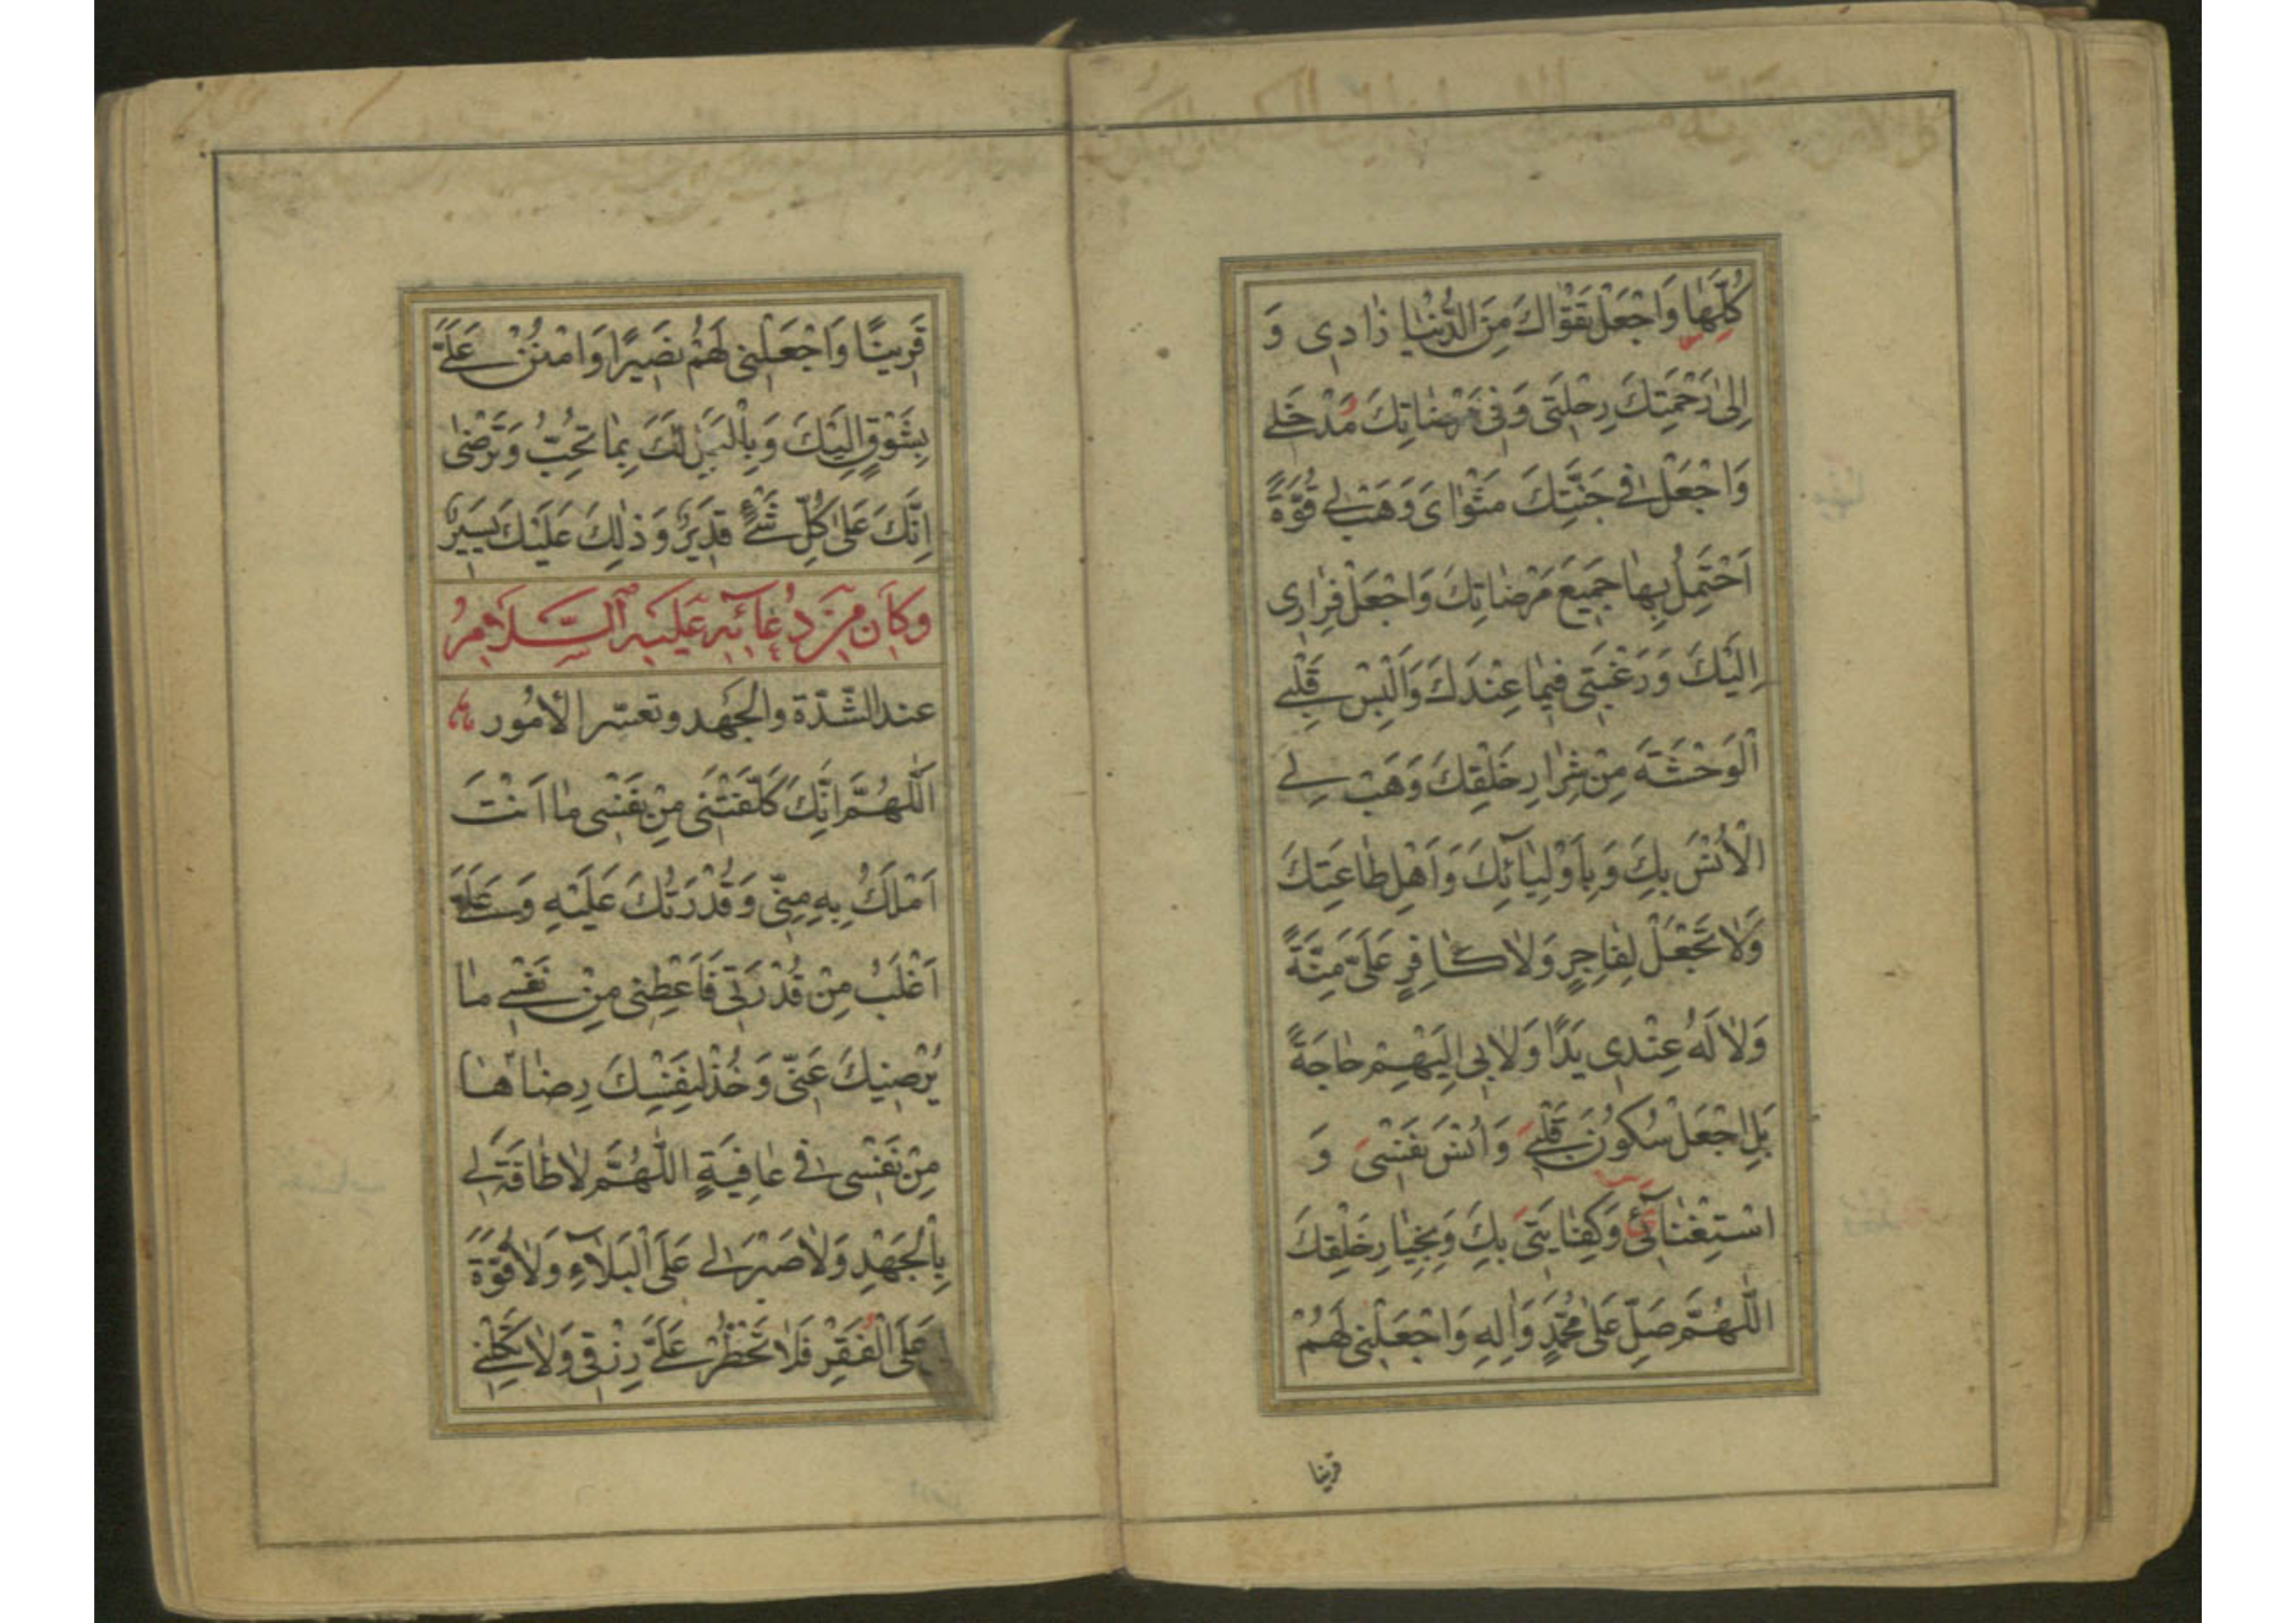 كُلِّهَا وَاجْعَلْ تَقْوَاكَ مِنَ الدُّنْيَا زَادِي وَ
اِلٰى رَحْمَتِكَ رِحْلَتِي وَفِي مَرْضَاتِكَ مَدْخَلِي
وَاجْعَلْ فِي جَنَّتِكَ مَثْوَايَ وَهَبْ لِي قُوَّةً
اَحْتَمِلُ بِهَا جَمِيعَ مَرْضَاتِكَ وَاجْعَلْ فِرَارِي
اِلَيْكَ وَرَغْبَتِي فِيمَا عِنْدَكَ وَاَلْبِسْ قَلْبِي
الْوَحْشَةَ مِنْ شِرَارِ خَلْقِكَ وَهَبْ لِي
الْاُنْسَ بِكَ وَبِاَوْلِيَائِكَ وَاَهْلِ طَاعَتِكَ
وَلَا تَجْعَلْ لِفَاجِرٍ وَلَا كَافِرٍ عَلَيَّ مِنَّةً
وَلَا لَهُ عِنْدِي يَدًا وَلَا بِي اِلَيْهِمْ حَاجَةً
بَلِ اجْعَلْ سُكُونَ قَلْبِي وَاُنْسَ نَفْسِي وَ
اسْتِغْنَائِي وَكِفَايَتِي بِكَ وَبِخِيَارِ خَلْقِكَ
اللّٰهُمَّ صَلِّ عَلٰى مُحَمَّدٍ وَاٰلِهِ وَاجْعَلْنِي لَهُمْ
قرينا
قَرِينًا وَاجْعَلْنِي لَهُمْ نَصِيرًا وَامْنُنْ عَلَيَّ
بِشَوْقٍ اِلَيْكَ وَبِالْعَمَلِ لَكَ بِمَا تُحِبُّ وَتَرْضٰى
اِنَّكَ عَلٰى كُلِّ شَيْءٍ قَدِيرٌ وَذٰلِكَ عَلَيْكَ يَسِيرٌ
وَكَانَ مِنْ دُعَائِهِ عَلَيْهِ السَّلَامُ
عند الشّدّة والجَهد وتعسّر الأمُور
اَللّٰهُمَّ اِنَّكَ كَلَّفْتَنِي مِنْ نَفْسِي مَا اَنْتَ
اَمْلَكُ بِهِ مِنِّي وَقُدْرَتُكَ عَلَيْهِ وَعَلَيَّ
اَغْلَبُ مِنْ قُدْرَتِي فَاَعْطِنِي مِنْ نَفْسِي مَا
يُرْضِيكَ عَنِّي وَخُذْ لِنَفْسِكَ رِضَاهَا
مِنْ نَفْسِي فِي عَافِيَةٍ اللّٰهُمَّ لَا طَاقَةَ لِي
بِالْجَهْدِ وَلَا صَبْرَ لِي عَلَى الْبَلَاءِ وَلَا قُوَّةَ
عَلَى الْفَقْرِ فَلَا تَحْظُرْ عَلَيَّ رِزْقِي وَلَا تَكِلْنِي